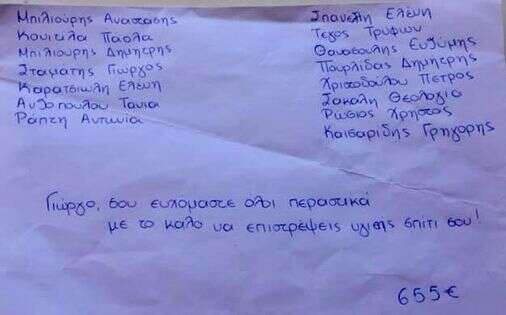 Μπιλιούρης Αναστάσης
Κουτελα Παολα
Μπιλιουρης Δημητρης
Σταμάτης Γιώργος
Καρατσιωλη Ελένη
Ανθοπουλου Τανια
Ράπτη Αντωνία
Σπανελη Ελένη
Τεγος Τρυφων
Θανασουλης Ευθύμης
Παυλίδας Δημητρης
Χριστοδουλου Πετρος
Σακαλη Θεολογια
Ρώσιος Χρηστος
Καισαρίδης Γρηγορης
Γιώργο, σου ευχομαστε ολοι περαστικά
με το καλο να επιστρέψεις υγιης σπίτι σου!
655€